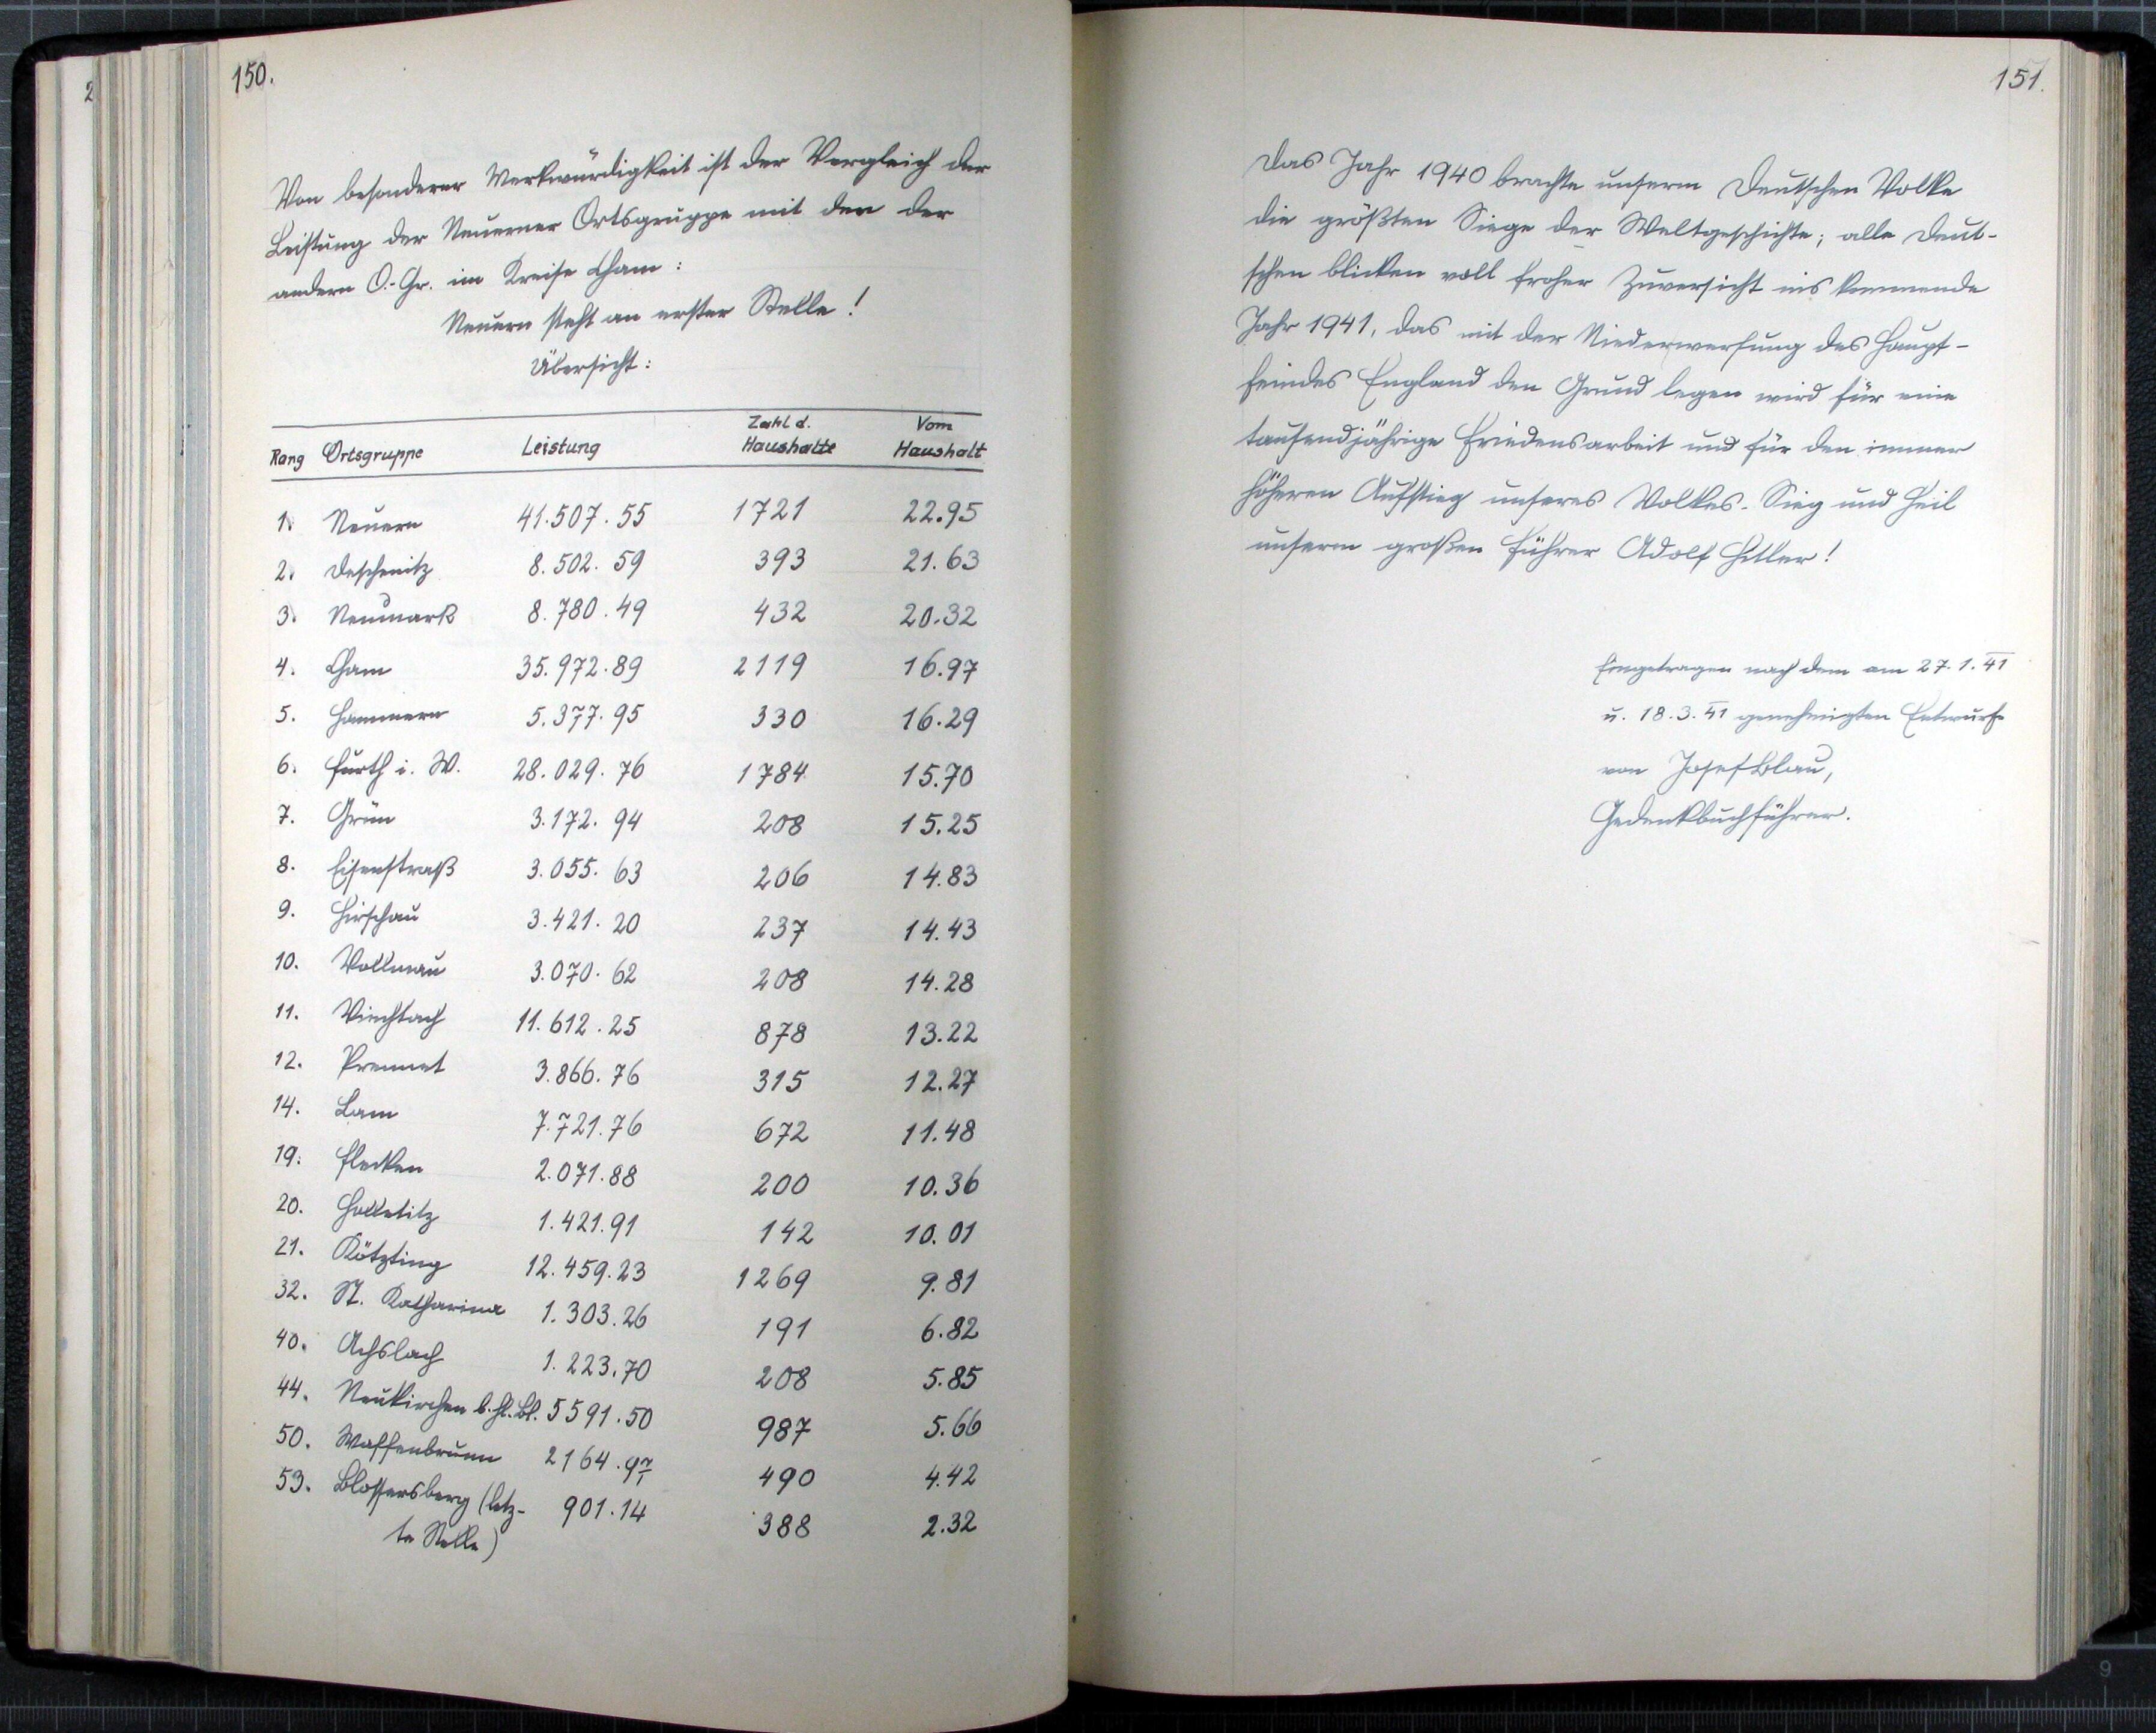 150.
Von besonderer Merkwürdigkeit ist der Vergleich der
Leistung der Neuerner Ortsgruppe mit den der
andern O.-Gr. im Kreise Cham:
Neuern steht an erster Stelle!
Übersicht:
Rang Ortsgruppe Leistung Zahl d. Haushalte Vom Haushalt
1. Neuern 41.507.55 1721 22.95
2. Deschenitz 8.502.59 393 21.63
3. Neumark 8.780.49 432 20.32
4. Cham 35.972.89 2119 16.97
5. Hammern 5.377.95 330 16.29
6. Furth i. W. 28.029.76 1784 15.70
7. Grün 3.172.94 208 15.25
8. Eisenstraß 3.055.63 206 14.83
9. Hirschau 3.421.20 237 14.43
10. Vollmau 3.070.62 208 14.28
11. Viechtach 11.612.25 878 13.22
12. Prennet 3.866.76 315 12.27
14. Lam 7.721.76 672 11.48
19. Flecken 2.071.88 200 10.36
20. Holletitz 1.421.91 142 10.01
21. Kötzting 12.459.23 1269 9.81
32. St. Katharina 1.303.26 191 6.82
40. Achslach 1.223.70 208 5.85
44. Neukirchen b. hl. Bl. 5591.50 987 5.66
50. Waffenbrunn 2164.97 490 4.42
53. Blossersberg (letz- 901.14 388 2.32
te Stelle)
151.
Das Jahr 1940 brachte unserm Deutschen Volke
die größten Siege der Weltgeschichte; alle Deut-
schen blicken voll froher Zuversicht ins kommende
Jahr 1941, das mit der Niederwerfung des Haupt-
feindes England den Grund legen wird für eine
tausendjährige Friedensarbeit und für den immer
höheren Aufstieg unseres Volkes. Sieg und Heil
unserm großen Führer Adolf Hitler!
Eingetragen nach dem am 27.1.41
u. 18.3.41 genehmigten Entwurfe
von Josef Blau,
Gedenkbuchführer.
2
9